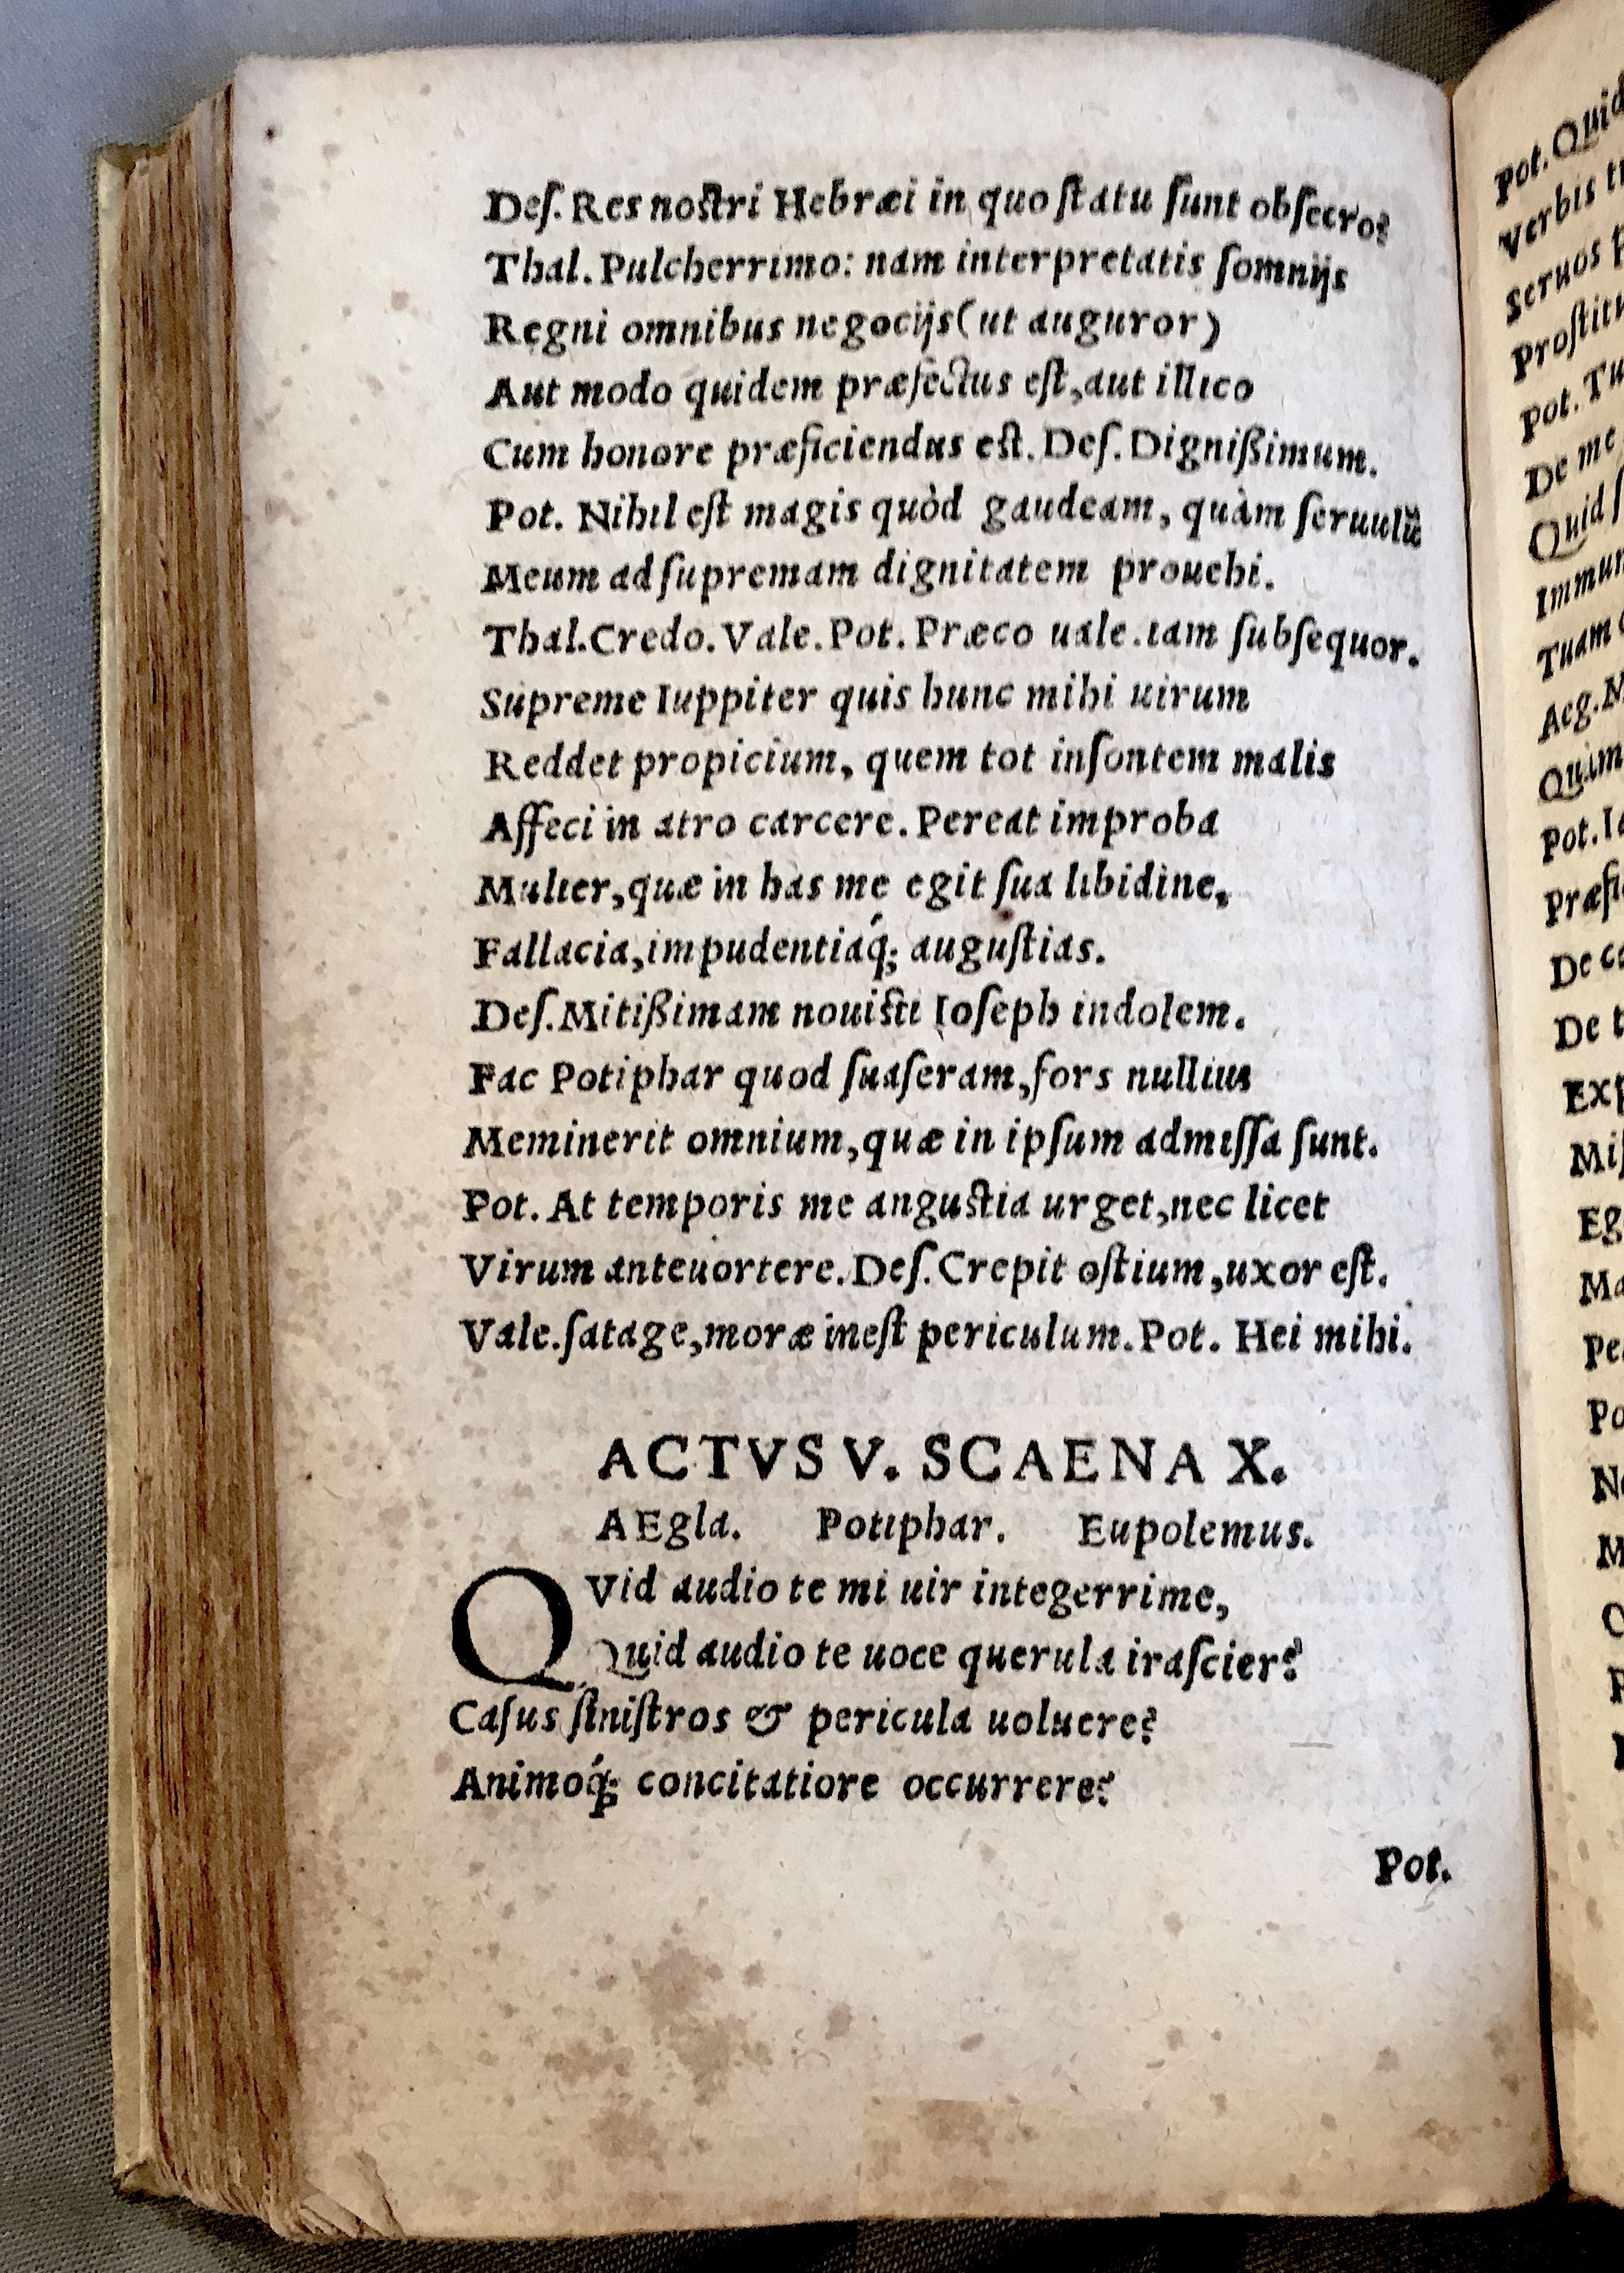 Deſ. Res noſtri Hebræi in quo ſtatu ſunt obſecro?
Thal. Pulcherrimo: nam interpretatis ſomnijs
Regni omnibus negocijs (ut auguror)
Aut modo quidem præfectus eſt, aut illico
Cum honore præficiendus eſt. Deſ. Dignißimum.
Pot. Nihil eſt magis quòd gaudeam, quàm ſeruulũ
Meum ad ſupremam dignitatem prouehi.
Thal. Credo. Vale. Pot. Præco uale. iam ſubſequor.
Supreme Iuppiter quis hunc mihi uirum
Reddet propicium, quem tot inſontem malis
Affeci in atro carcere. Pereat improba
Mulier, quæ in has me egit ſua libidine,
Fallacia, impudentiaq́; auguſtias.
Deſ. Mitißimam nouiſti Ioſeph indolem.
Fac Potiphar quod ſuaſeram, fors nullius
Meminerit omnium, quæ in ipſum admiſſa ſunt.
Pot. At temporis me anguſtia urget, nec licet
Virum anteuortere. Deſ. Crepit oſtium, uxor eſt.
Vale. ſatage, moræ ineſt periculum. Pot. Hei mihi.
ACTVS V. SCAENA X.
AEgla. Potiphar. Eupolemus.
QVid audio te mi uir integerrime,
Quid audio te uoce querula iraſcier?
Caſus ſiniſtros & pericula uoluere?
Animoq́; concitatiore occurrere?
Pot.
Pot. Quid
Verbis
Seruos
Pot. Tu
De me
Quid
Tuam
Aeg.
Pot.
De
De